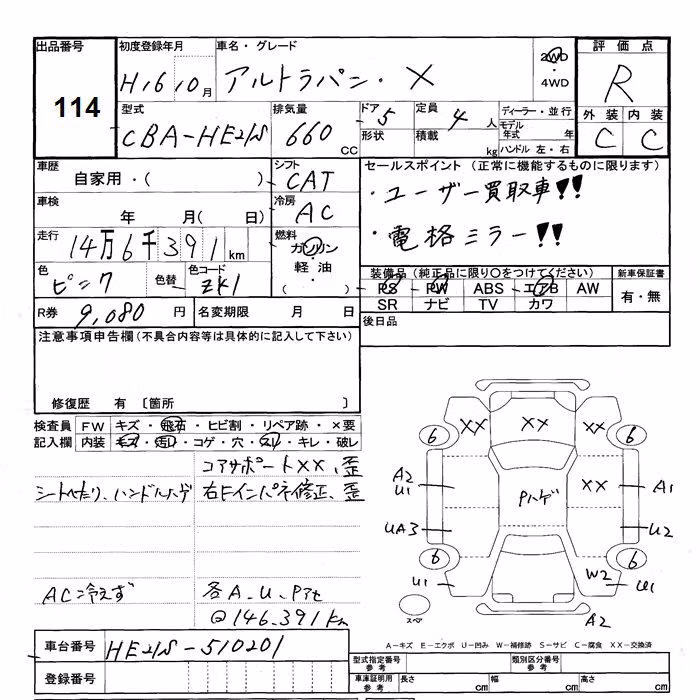 出品番号 114
初度登録年月 H16 10月
車名・グレード アルトラパン・X
2WD・4WD
評価点 R
外装 C 内装 C
型式 CBA-HE21S
排気量 660 CC
ドア 5 形状
定員 4 人 積載 kg
ディーラー・並行
モデル年式 年
ハンドル 左・右
車歴 自家用・( )
シフト CAT
車検 年 月( 日)
冷房 AC
走行 14万6千391km
燃料 ガソリン・軽油・( )
色 ピンク 色替 色コード ZK1
R券 9,080円 名変期限 月 日
セールスポイント (正常に機能するものに限ります)
・ユーザー買取車!!
・電格ミラー!!
装備品 (純正品に限り○をつけてください)
PS PW ABS エアB AW
SR ナビ TV カワ
新車保証書 有・無
後日品
注意事項申告欄 (不具合内容等は具体的に記入して下さい)
修復歴 有 〔箇所 〕
検査員記入欄 FW キズ・飛石・ヒビ割・リペア跡・×要
内装 キズ・汚れ・コゲ・穴・スレ・キレ・破レ
コアサポートXX、歪
シートへたり、ハンドルハゲ 右Fインパネ修正、歪
AC冷えず 各A、U、Pアセ
@146.391km
車台番号 HE21S-510201
登録番号
XX XX XX
6 6
A2 U1 Pハゲ XX A1
UA3 U2
6 6
U1 W2 U1
スペア A2
A-キズ E-エクボ U-凹み W-補修跡 S-サビ C-腐食 XX-交換済
型式指定番号 参考 類別区分番号 参考
車庫証明用 参考 長さ cm 幅 cm 高さ cm